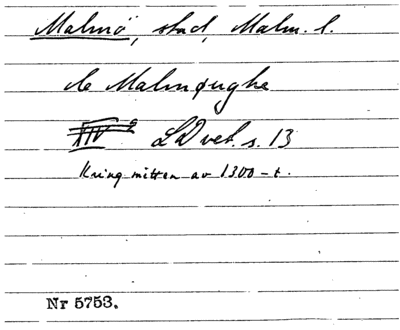 Malmö, stad, Malm. l.
de Malmøughe
LD vet. s. 13
Kring mitten av 1300-t.
Nr 5753.